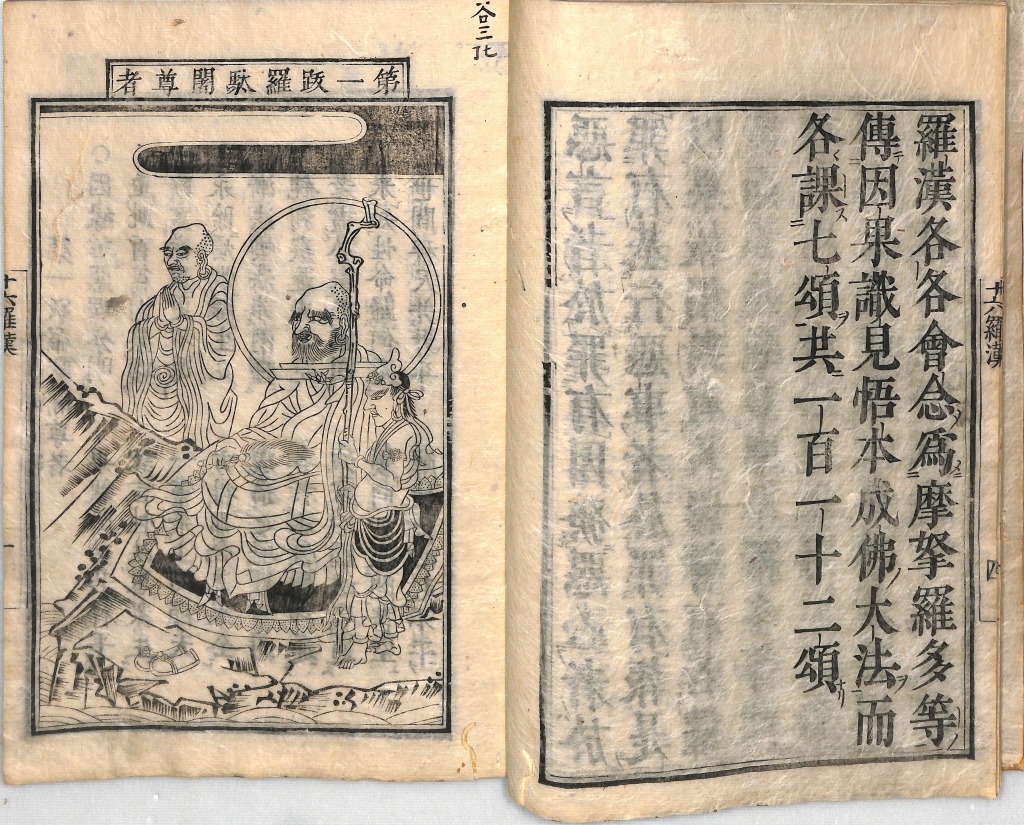 十六羅漢
四
羅漢各各會念爲摩拏羅多等
傳因果識見悟本成佛大法而
各課七頌共一百一十二頌
第一跋羅駄闍尊者
十六羅漢
一